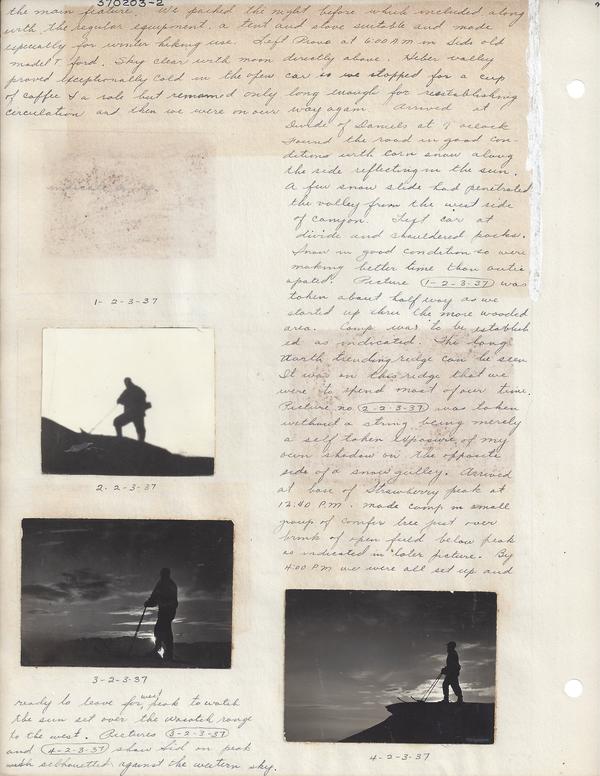 370203-2
the main feature. We packed the night before which included along
with the regular equipment a tent and stove suitable and made
especially for winter hiking use. Left Provo at 6:00 A.M. in Sids old
model T ford. Sky clear with moon directly above. Heber valley
proved exceptionally cold in the open car so we stopped for a cup
of coffee & a role but remained only long enough for reestablishing
circulation and then we were on our way again. Arrived at
Divide of Daniels at 9 oclock
Found the road in good con-
ditions with corn snow along
the side reflecting in the sun.
A few snow slide had penetrated
the valley from the west side
of canyon. Left car at
divide and shouldered packs.
Snow in good condition so were
making better time than antic
apated. Picture 1-2-3-37 was
taken about half way as we
started up thru the more wooded
area. Camp was to be establish
ed as indicated. The long
north trending ridge can be seen
It was on this ridge that we
were to spend most of our time.
Picture no 2-2-3-37 was taken
without a string being merely
a self taken exposure of my
own shadow on the opposite
side of a snow gulley. Arrived
at base of Strawberry peak at
12:40 P.M. made camp in small
group of conifer tree just over
brink of open field below peak
as indicated in later picture. By
4:00 PM we were all set up and
1- 2-3-37
2. 2-3-37
3-2-3-37
ready to leave for west peak to watch
the sun set over the Wasatch range
to the west. Pictures 3-2-3-37
and 4-2-3-37 show Sid on peak
silhouetted against the western sky.
4-2-3-37